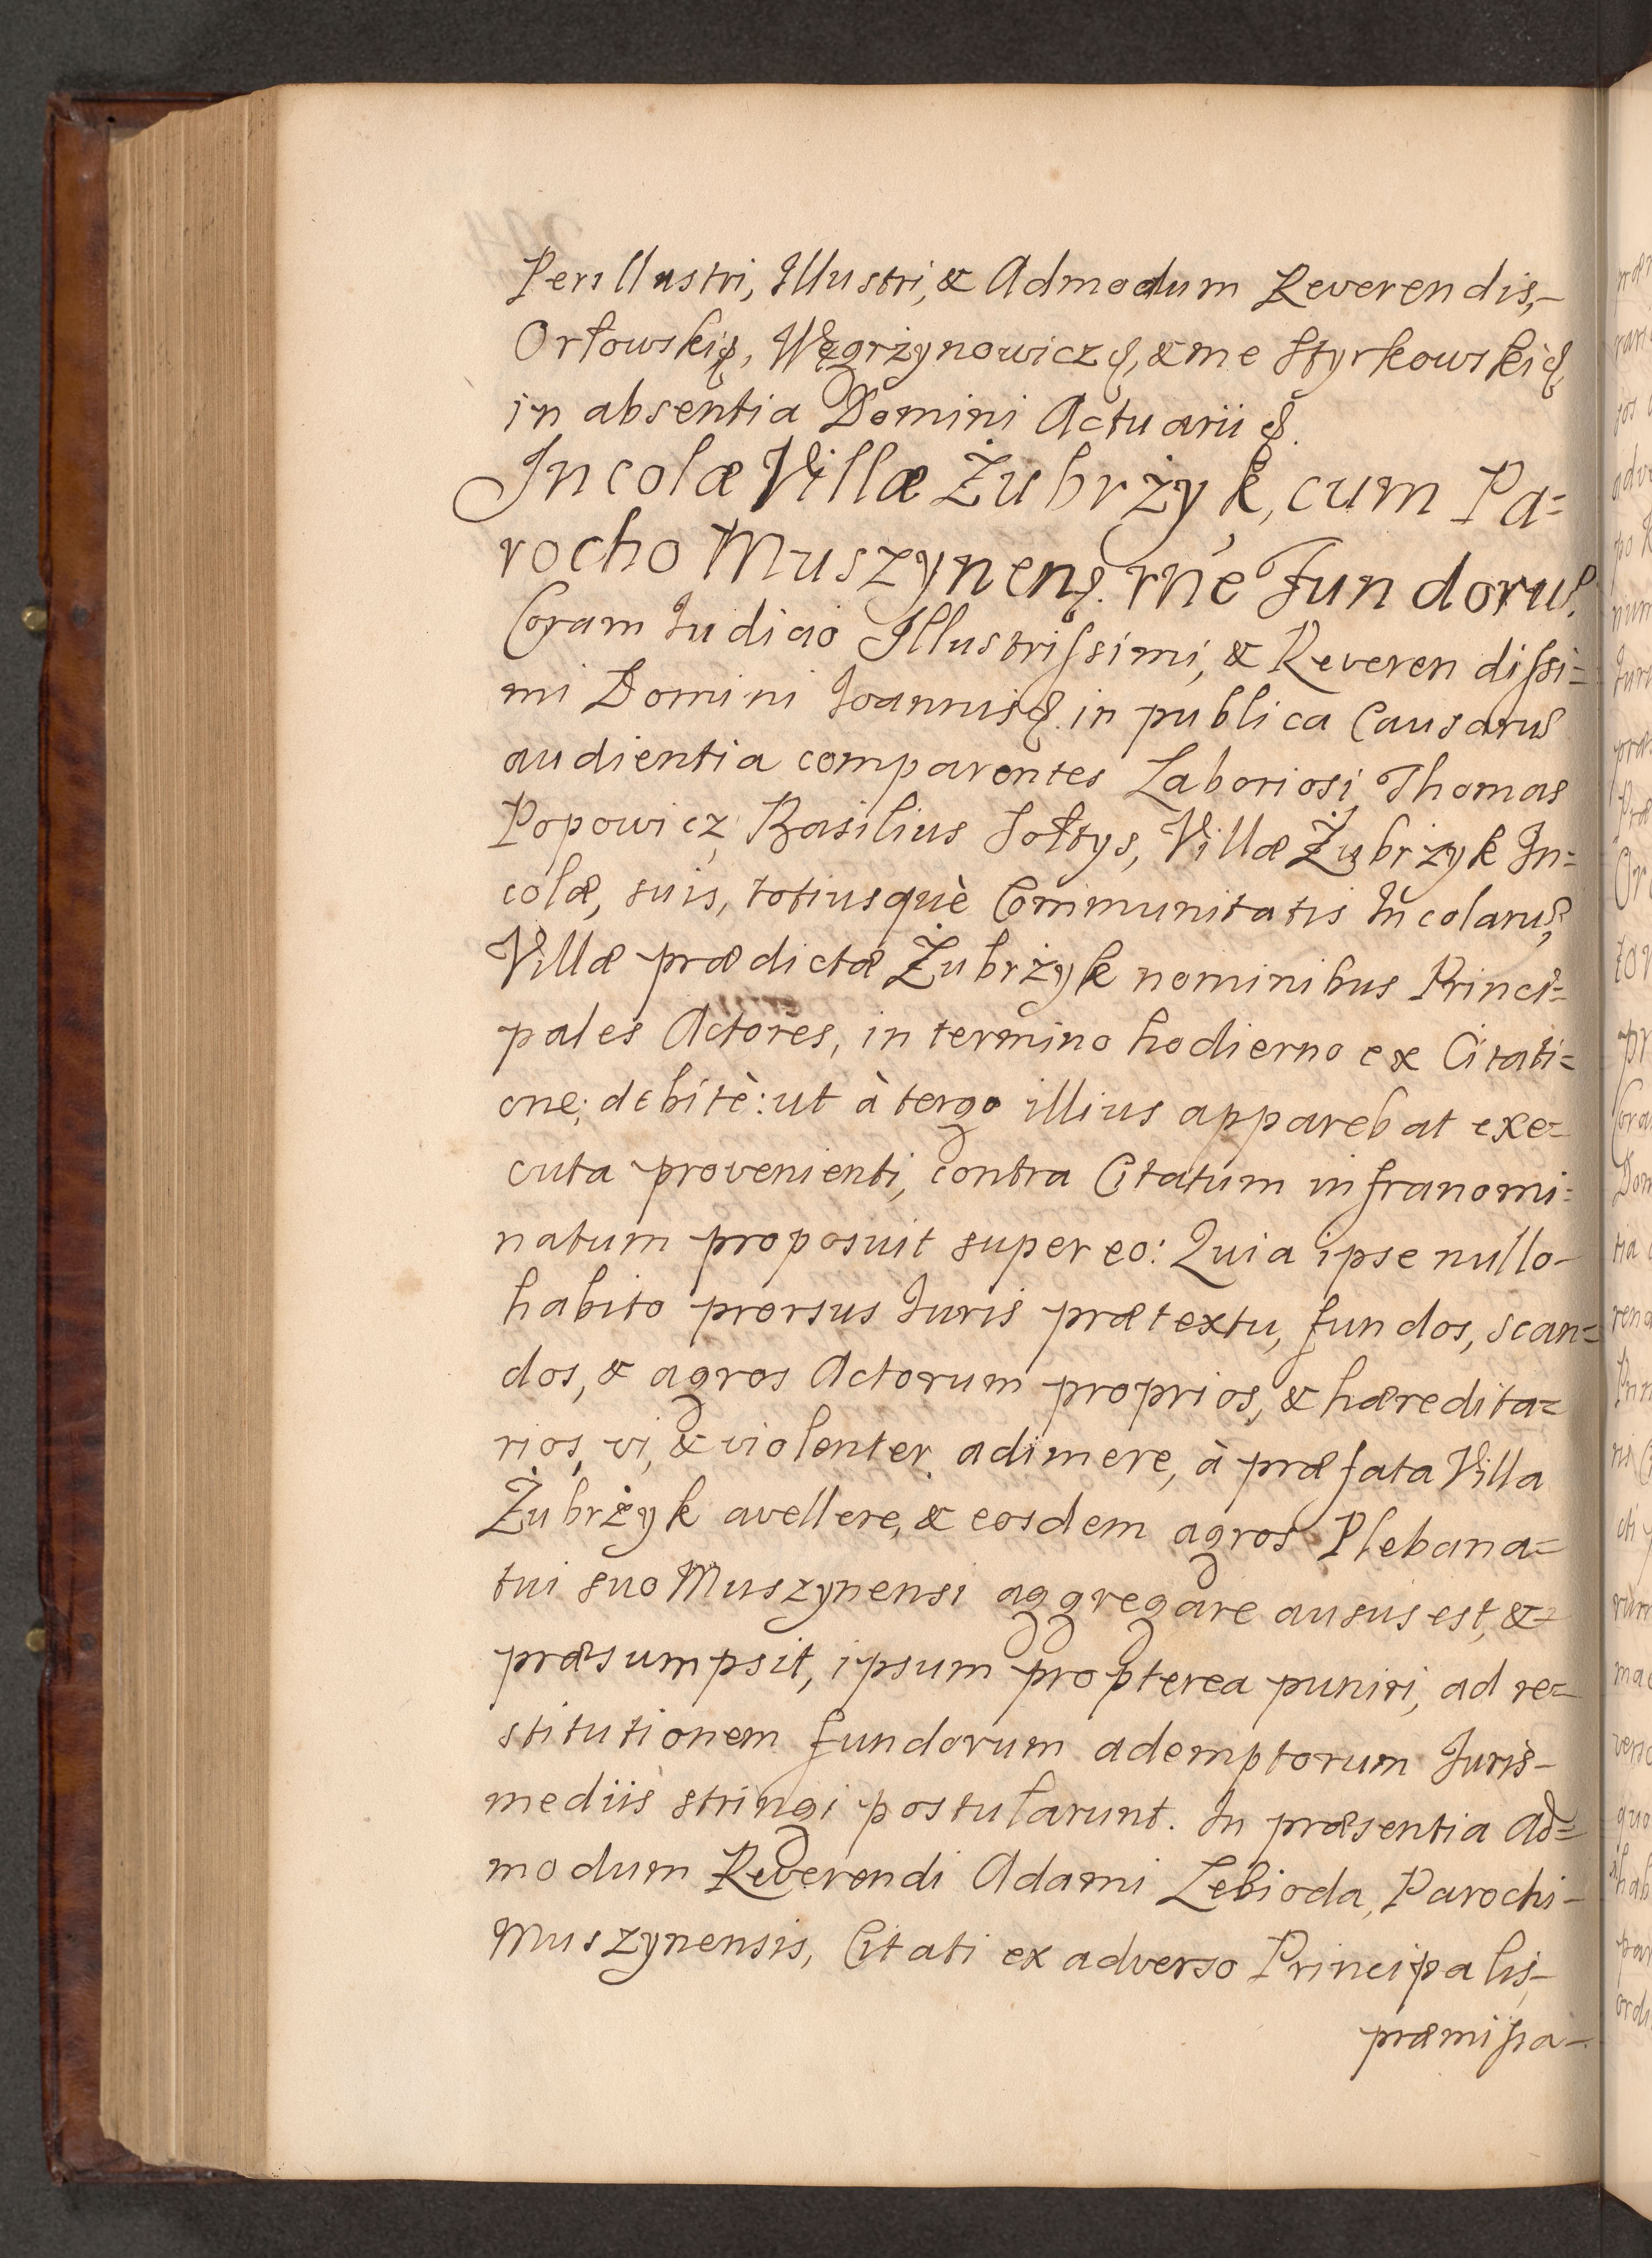 Perillustri, Illustri, & Admodum Reverendis,-
Orłowski&, Węgrżynowicz&, & me Styrkowski&
in absentia Domini Actuarii &.
Incolæ Villæ Żubrżyk, cum Pa=
rocho Muszynen&. rñe Fundoru&.
Coram Iudicio Illustrissimi, & Reverendissi=
mi Domini Joannis&. in publica Causaru&
audientia comparentes Laboriosi Thomas
Popowicz, Basilius Sołtys, Villæ Żubrżyk In=
colæ, suis, totiusquè Communitatis Incolaru&,
Villæ prædictæ Żubrżyk nominibus Princi=
pales Actores, in termino hodierno ex Citati=
one; debitè: ut à tergo illius apparebat exe=
cuta provenienti, contra Citatum infranomi=
natum proposuit super eo: Quia ipse nullo-
habito prorsus Iuris prætextu, fundos, scan=
dos, & agros Actorum proprios, & hæredita=
rios, vi, & violenter adimere, à præfata Villa
Żubrżyk avellere, & eosdem agros Plebana=
tui suo Muszynensi aggregare ausus est, &-
præsumpsit, ipsum propterea puniri, ad re=
stitutionem fundorum ademptorum Iuris-
mediis stringi postularunt. In præsentia Ad=
modum Reverendi Adami Lebioda, Parochi-
Muszynensis, Citati ex adverso Principalis,-
præmissa-